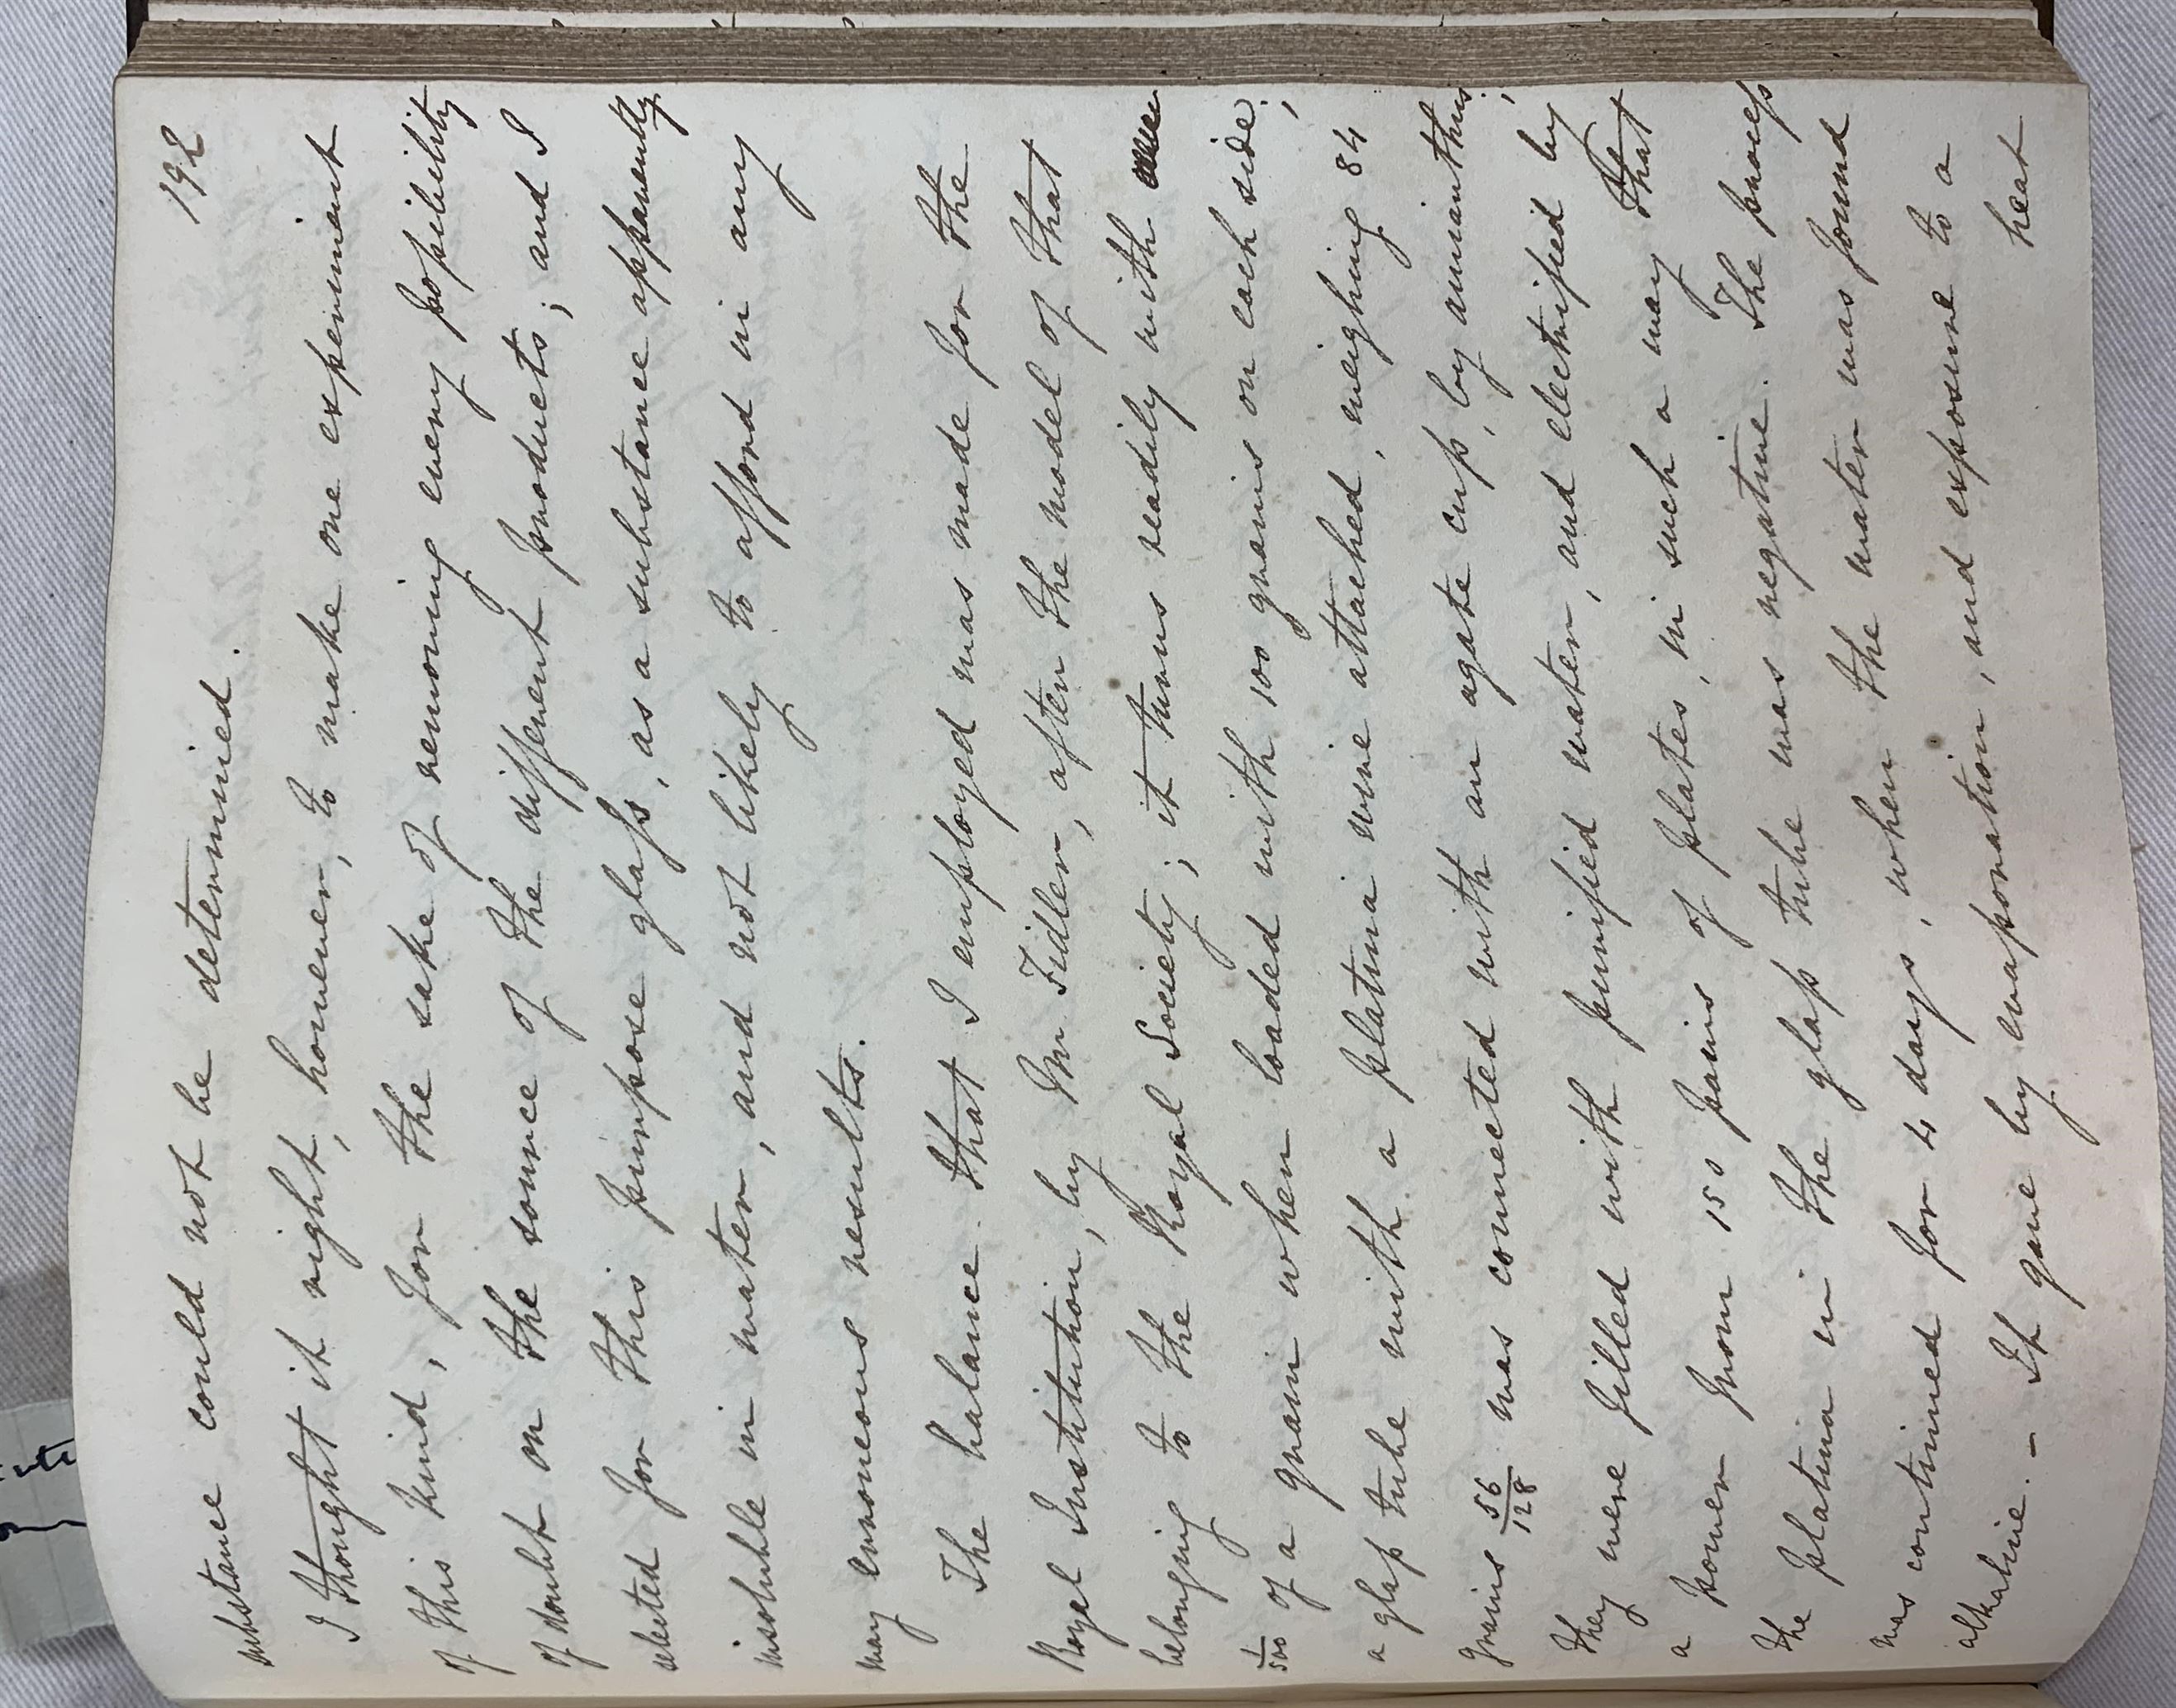 192
substance could not be determined.
I thought it right, however, to make one experiment
of this kind, for the sake of removing every possibility
of doubt on the source of the different products; and I
selected for this purpose glass, as a substance apparently
insoluble in water, and not likely to afford in any
way erroneous results.
The balance that I employed was made for the
Royal Institution, by Mr Fidler, after the model of that
belonging to the Royal Society; it turns readily with
1/500 of a grain when loaded with 100 grains on each side;
a glass tube with a platina wire attached, weighing 84
grains 56/128 was connected with an agate cup, by amianthus;
they were filled with purified water, and electrified by
a power from 150 pairs of plates, in such a way that
the platina in the glass tube was negative. The process
was continued for 4 days, when the water was found
alkaline. – It gave by evaporation, and exposure to a
heat